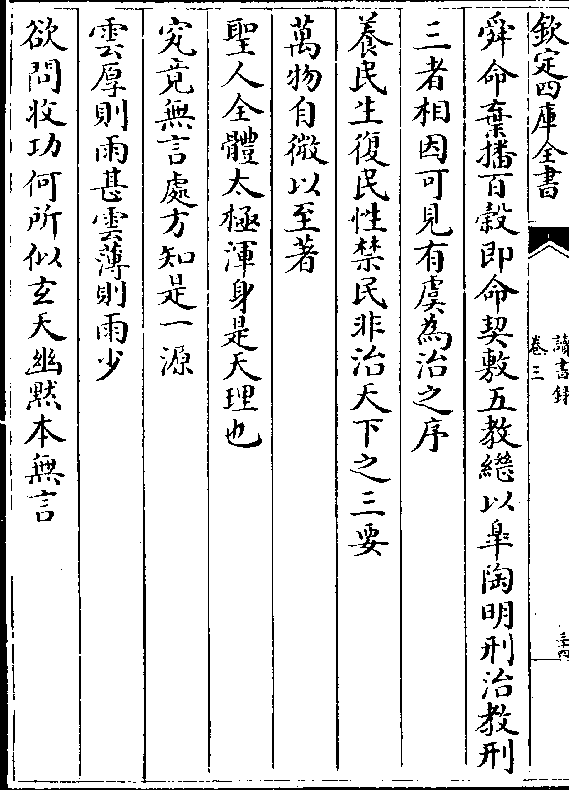 欽定四庫全書
讀書録
卷三
三十四
舜命棄播百穀即命契敷五教繼以臯陶明刑治教刑
三者相因可見有虞為治之序
養民生復民性禁民非治天下之三要
萬物自微以至著
聖人全體太極渾身是天理也
究竟無言處方知是一源
雲厚則雨甚雲薄則雨少
欲問收功何所似玄天幽黙本無言